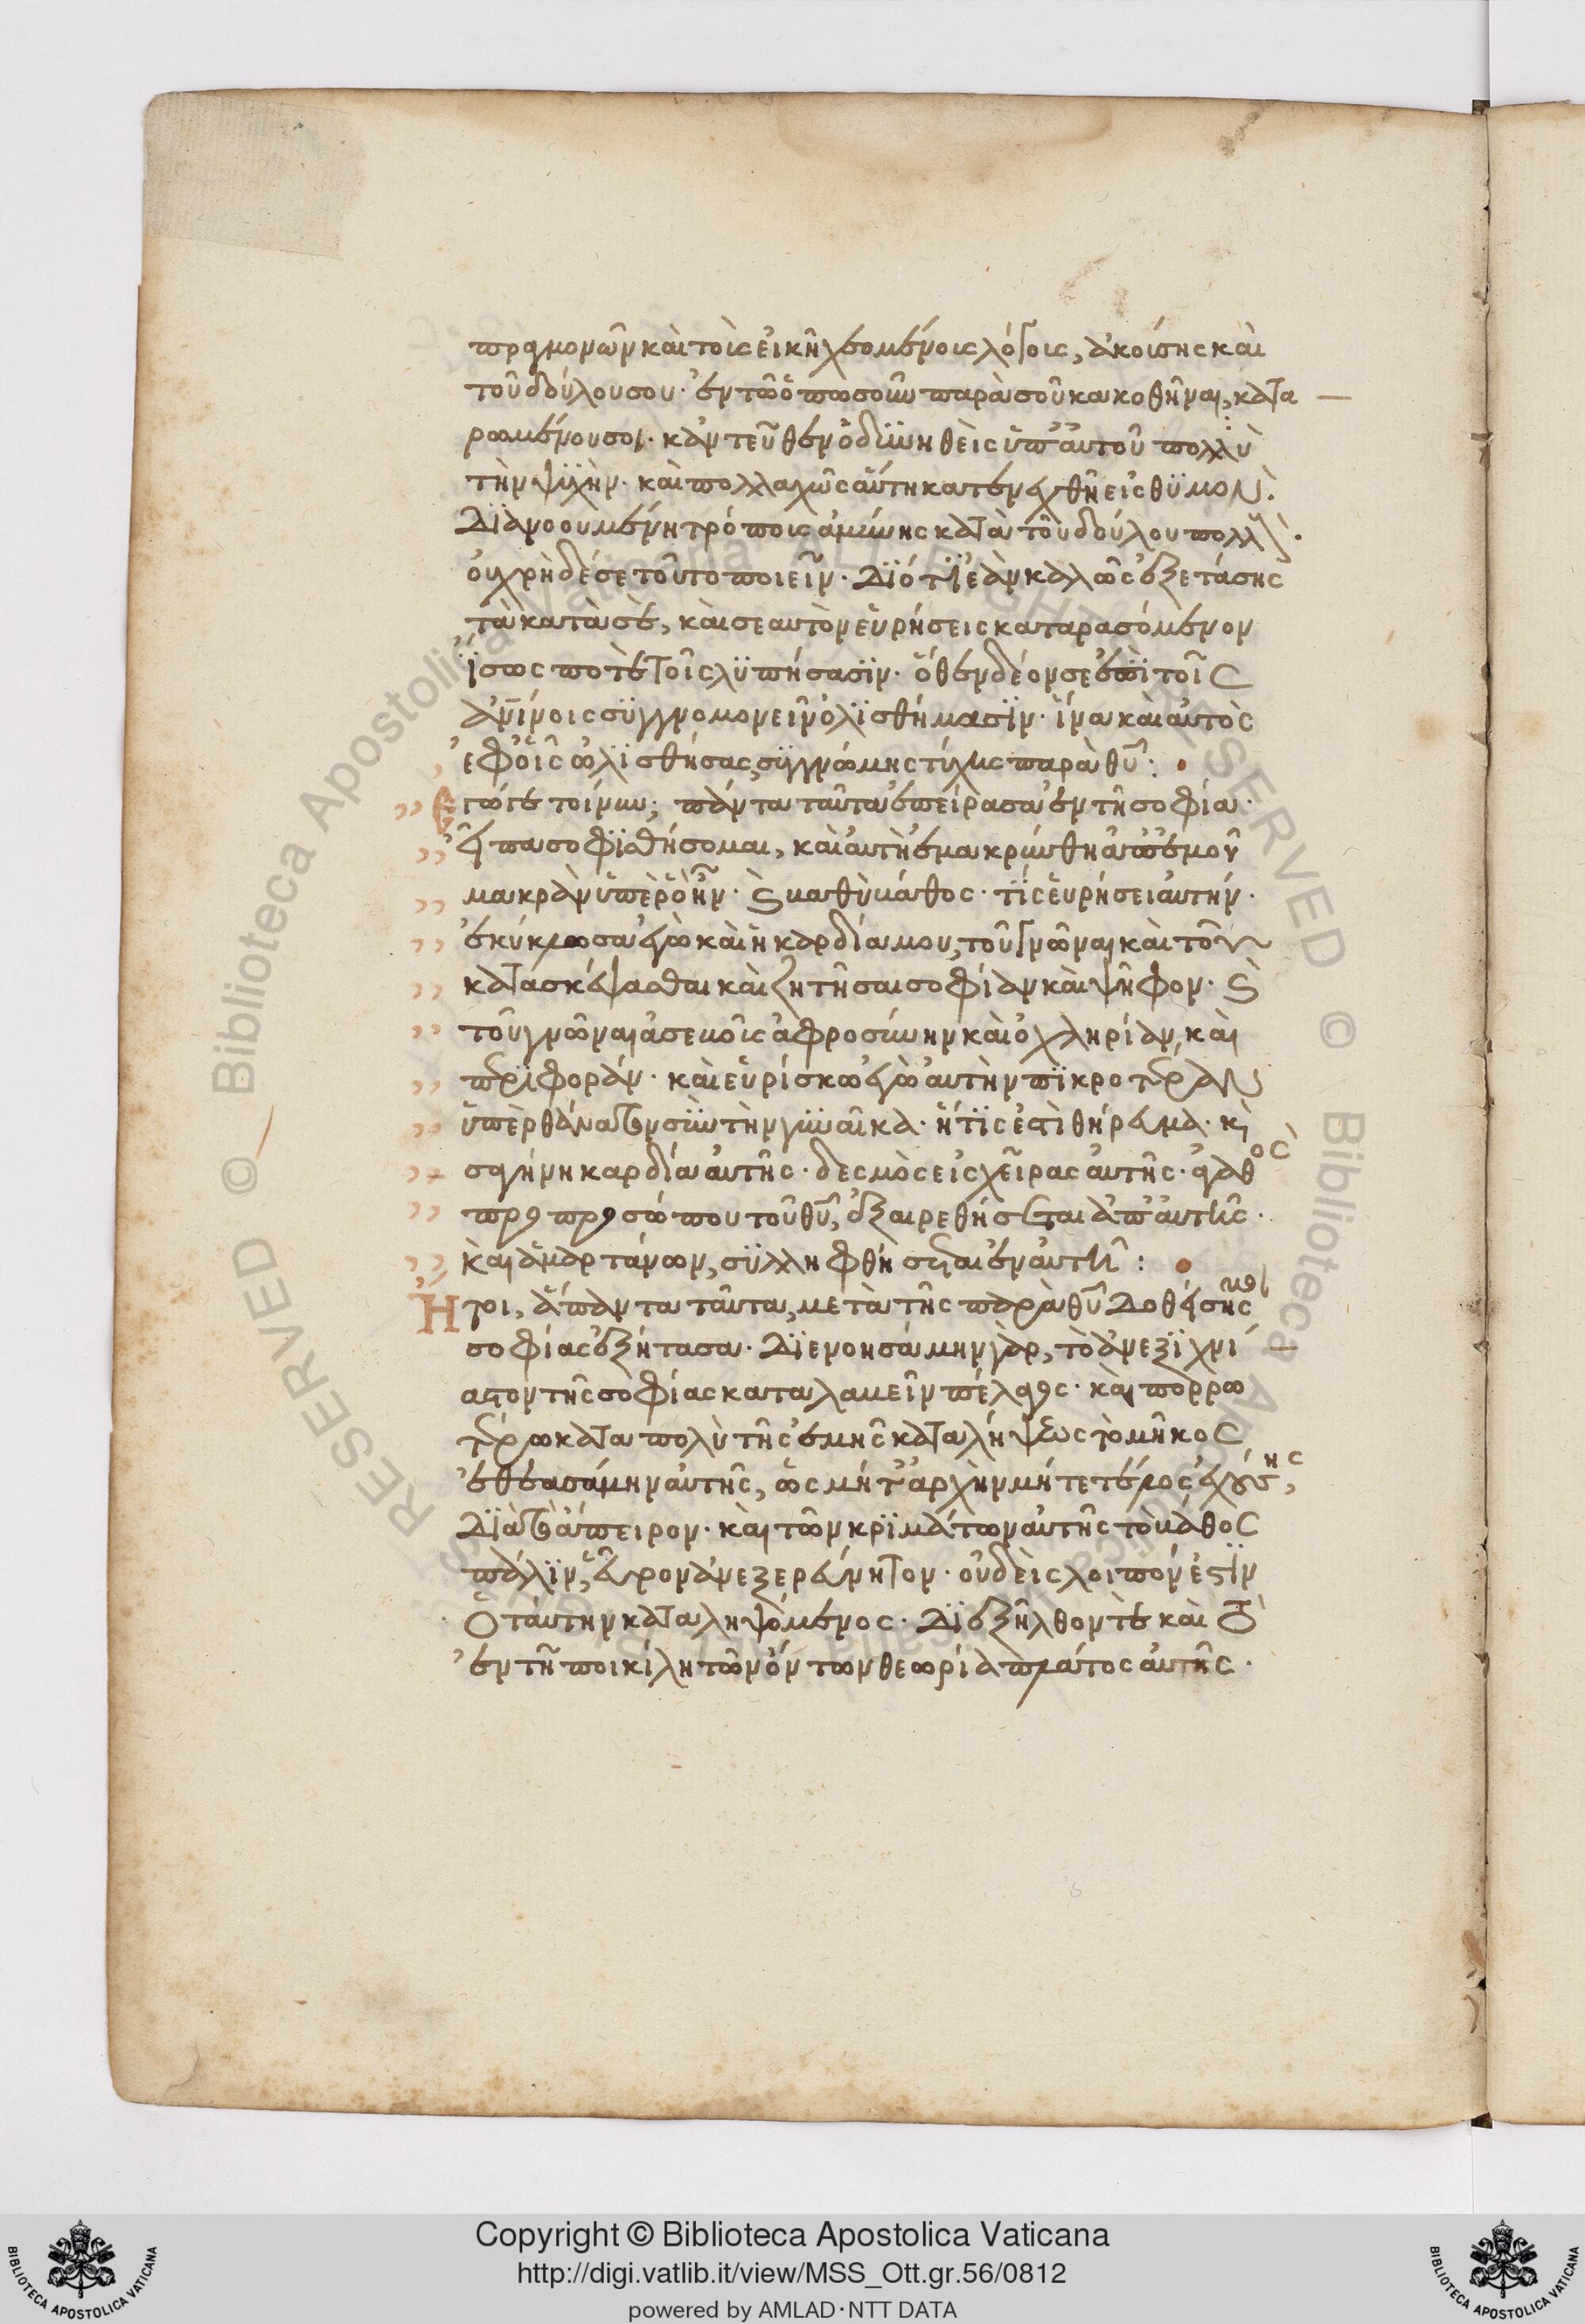 προσμονῶν καὶ τοῖς εἰκῆ χεομένοις λόγοις, ἀκούσης καὶ
τοῦ δούλου σου· ἐν τῶ ὁπωσοῦν παρὰ σοῦ κακοθῆναι, κατα
ρωμένου σοι· κἀντεῦθεν ὀδυνηθεὶς ὑπ' αὐτοῦ πολλὺ
τὴν ψυχὴν· καὶ πολλαχῶς αὕτη κατενεχθῆ εἰς θυμὸν.
Διανοουμένη τρόποις ἀμύνης κατὰ τοῦ δούλου πολλοῖς·
οὐ χρὴ δέ σε τοῦτο ποιεῖν· Διότι ἐὰν καλῶς ἐξετάσης
τὰ κατὰ σὲ, καὶ σεαυτὸν εὑρήσεις καταρασόμενον
ἴσως ποτὲ τοῖς λυπήσασιν· ὅθεν δέον σε ἐπὶ τοῖς
ἀνίνοις συγγνομονεῖν ὀλισθήμασιν· ἵνα καὶ αὐτὸς
ἐφ' οἷς ὠλίσθησας, συγγνώμης τύχης παρὰ θῦ:
πάντα ταῦτα ἐπείρασα ἐν τῆ σοφία·
εἶπα σοφισθήσομαι, καὶ αὐτὴ ἐμακρύνθη ἀπ' ἐμοῦ
μακρὰν ὑπὲρ ὃ ἦν· καὶ βαθὺ βάθος· τίς εὑρήσει αὐτήν·
ἐκύκλωσα ἐγὼ καὶ ἡ καρδία μου, τοῦ γνῶναι καὶ τοῦ
κατασκέψασθαι καὶ ζητῆσαι σοφίαν καὶ ψῆφον· καὶ
τοῦ γνῶναι ἀσεβοῖς ἀφροσύνην καὶ ὀχληρίαν, καὶ
περιφοράν· καὶ εὑρίσκω ἐγὼ αὐτὴν πικροτέραν
ὑπὲρ θάνατον σὺν τὴν γυναῖκα· ἥτις ἐστὶ θήρευμα· κὶ
σαγήνη καρδία αὐτῆς· δεσμὸς εἰς χεῖρας αὐτῆς· ἀγαθὸς
πρὸ προσώπου τοῦ θῦ, ἐξαιρεθήσεται ἀπ' αὐτῆς·
καὶ ἁμαρτάνων, συλληφθήσεται ἐν αὐτῆ:
Ἤτοι, ἅπαντα ταῦτα, μετὰ τῆς παρὰ θῦ Δοθείσης μοι
σοφίας ἐξήτασα· Διενοησάμην γὰρ, τὸ ἀνεξιχνί
αστον τῆς σοφίας καταλαβεῖν πέλαγος· καὶ πορρω
τέρω κατα πολὺ τῆς ἐμῆς καταλήψεως τὸ μῆκος
ἐθεασάμην αὐτῆς, ὡς μήτ' ἀρχὴν μήτε τέλος ἐχούσης,
Διὰ τὸ ἄπειρον· καὶ τῶν κριμάτων αὐτῆς τὸ βάθος
πάλιν, εὗρον ἀνεξερεύνητον· οὐδεὶς λοιπόν ἐστιν
ὁ ταύτην καταληψόμενος· Διεξῆλθον τὲ καὶ τὸ
ἐν τῆ ποικίλη τῶν ὄντων θεωρία πλάτος αὐτῆς·
Copyright © Biblioteca Apostolica Vaticana
http://digi.vatlib.it/view/MSS_Ott.gr.56/0812
powered by AMLAD·NTT DATA